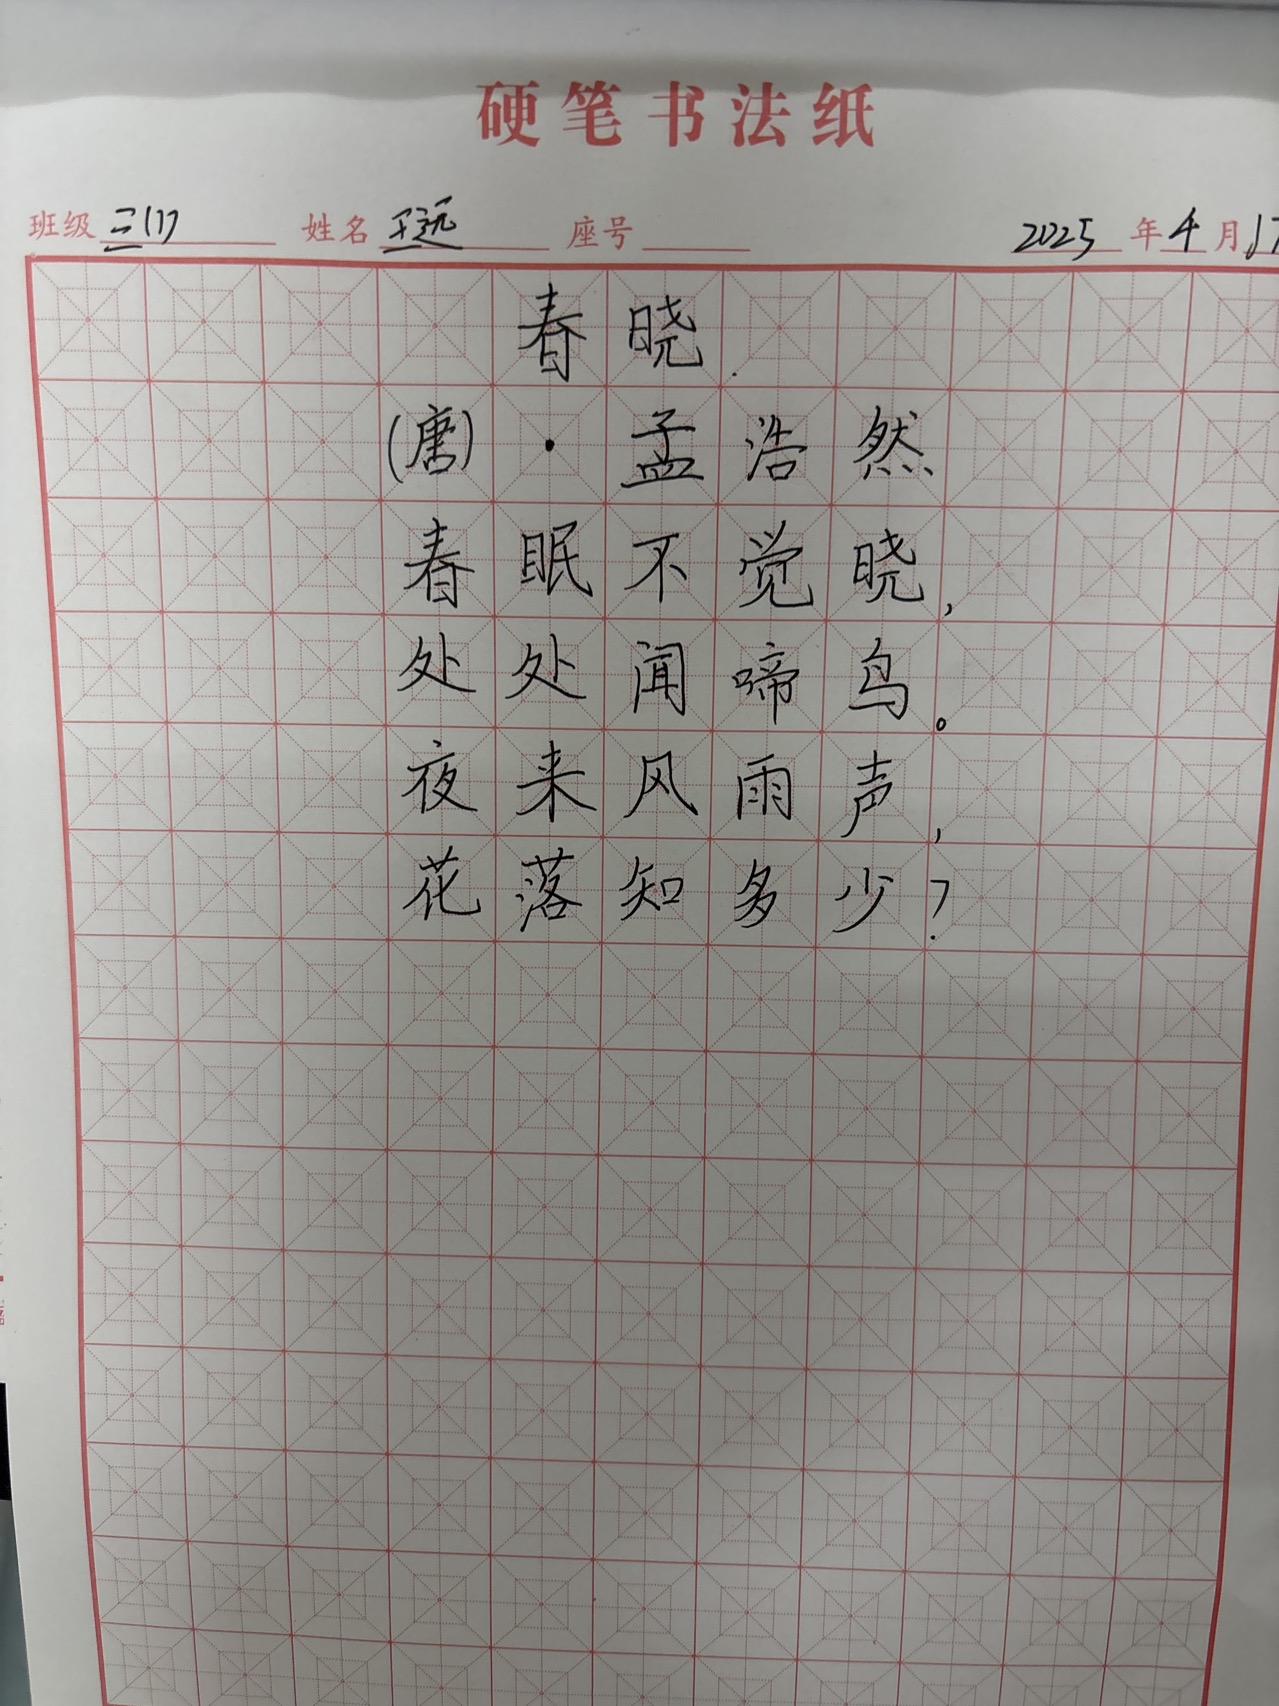 硬笔书法纸
班级 三(1) 姓名 王远 座号 2025 年 4 月 17
春晓
(唐)·孟浩然
春眠不觉晓,
处处闻啼鸟。
夜来风雨声,
花落知多少?